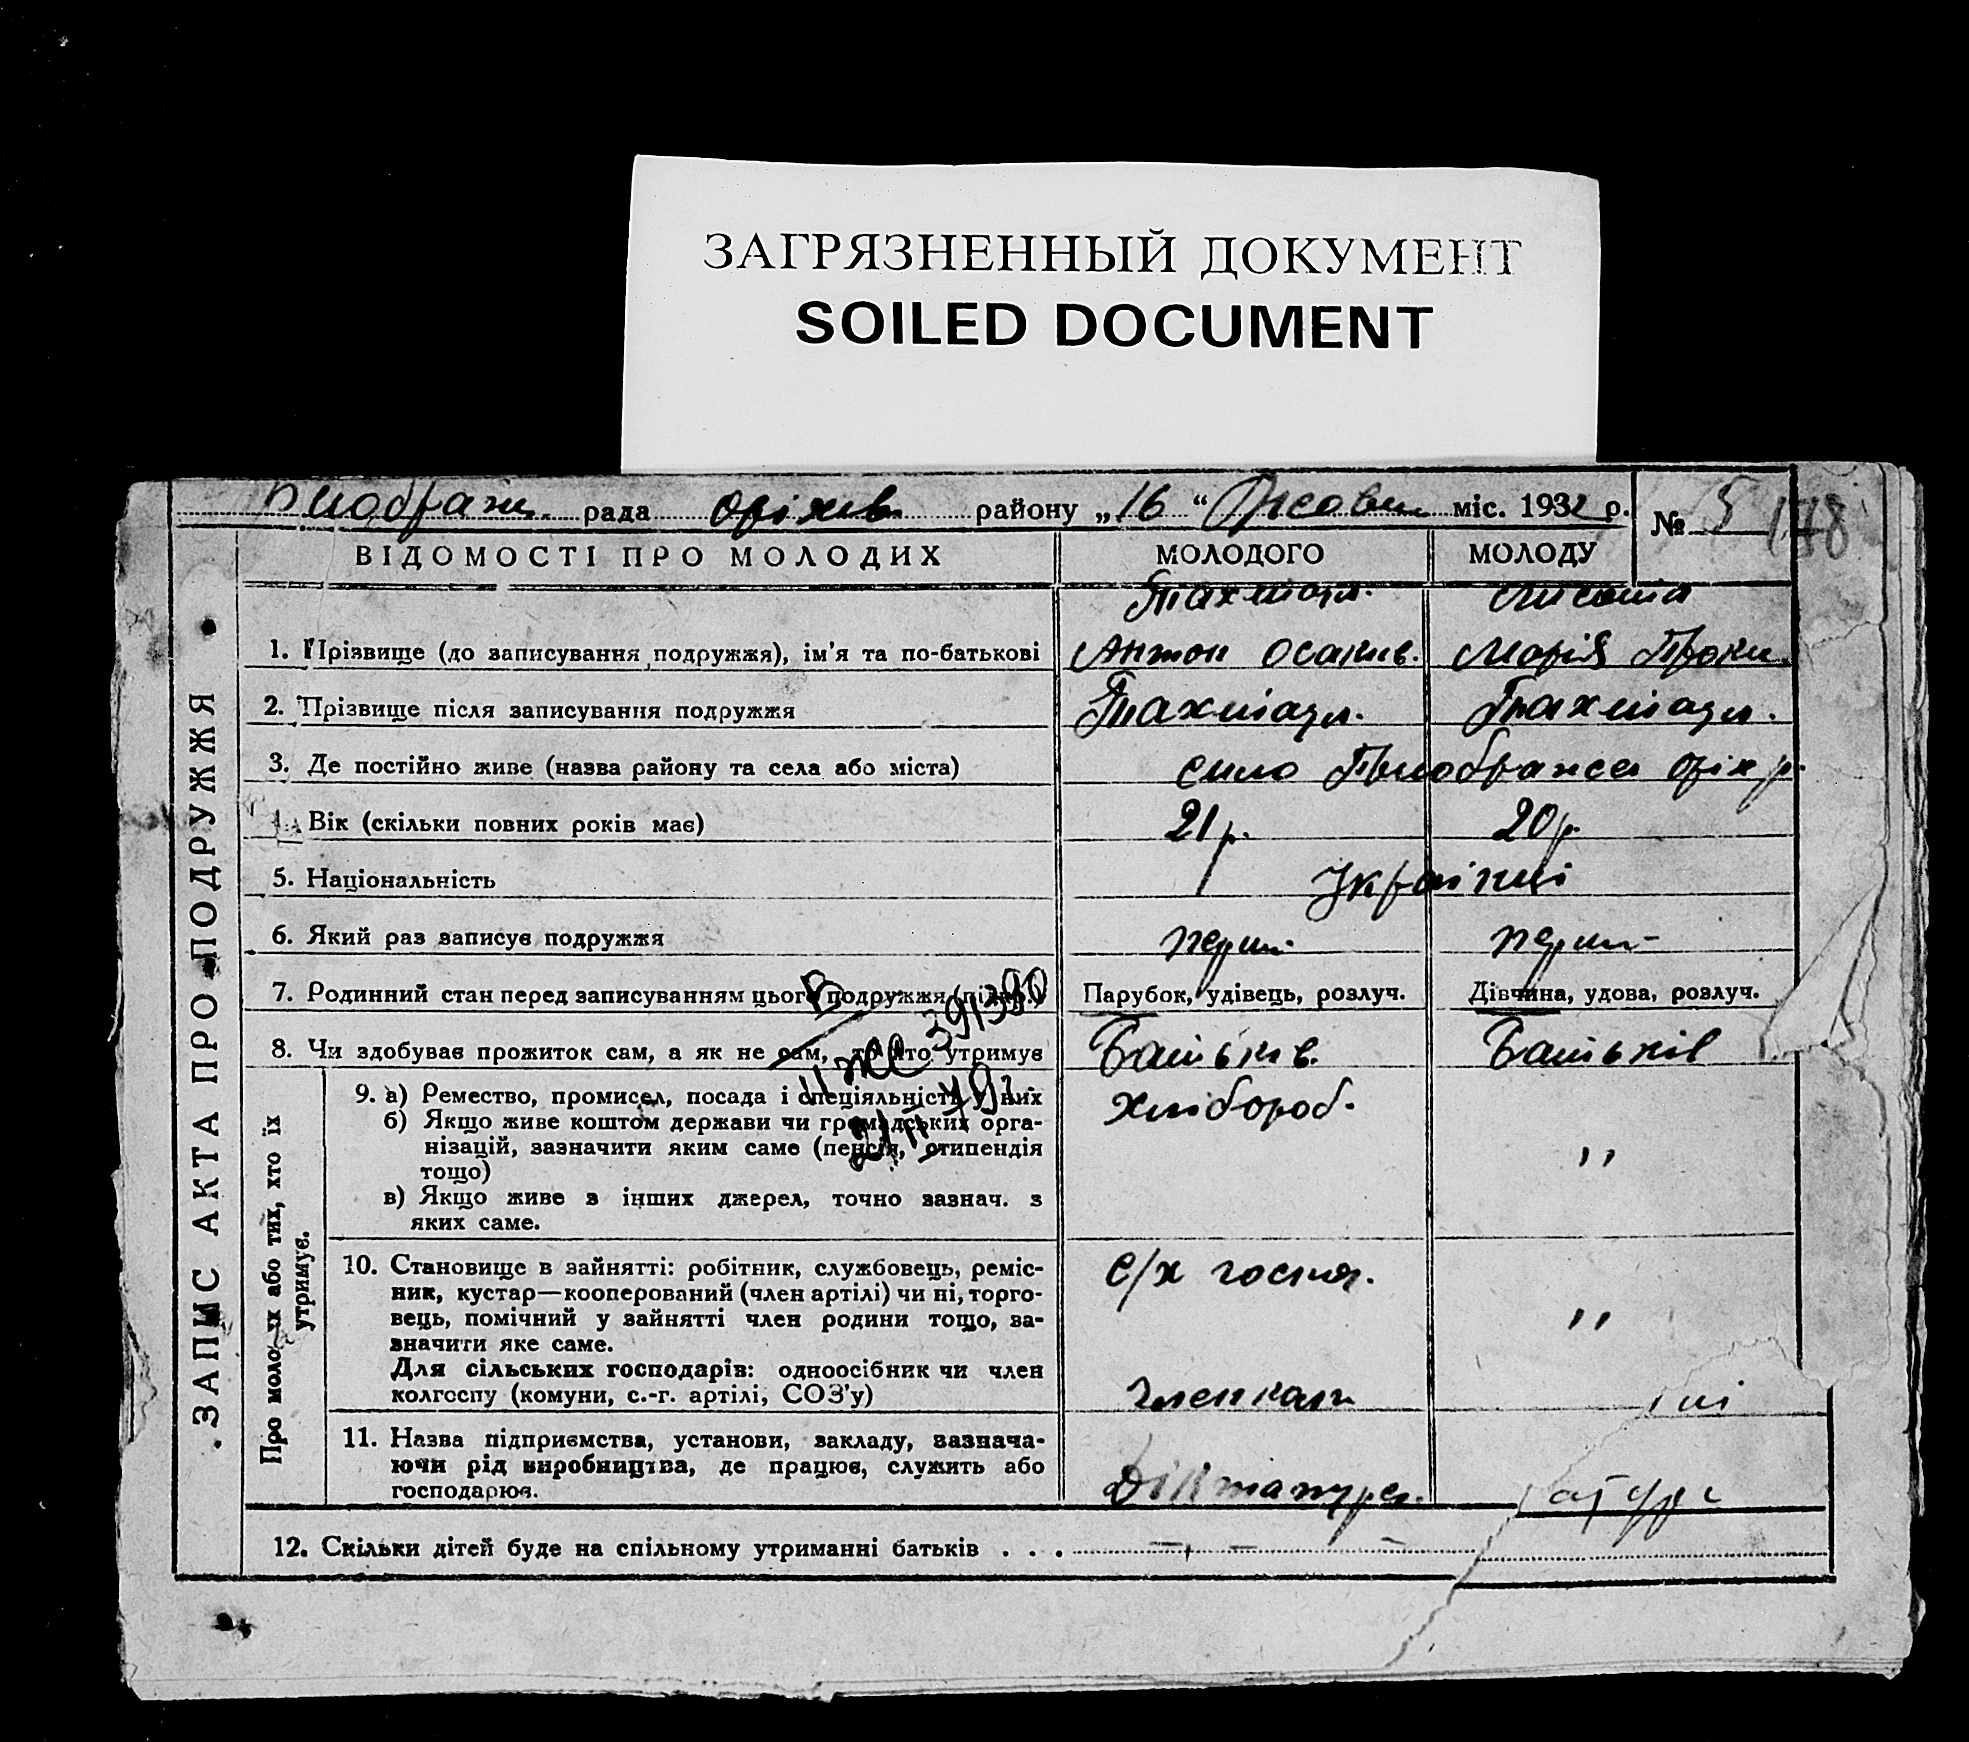 ЗАГРЯЗНЕННЫЙ ДОКУМЕНТ
SOILED DOCUMENT
рада оріхів району „16“ міс. 1932 р. № 5 178
ВІДОМОСТІ ПРО МОЛОДИХ МОЛОДОГО МОЛОДУ
ЗАПИС АКТА ПРО ПОДРУЖЖЯ
1. Прізвище (до записування подружжя), ім'я та по-батькові Антон Марія
2. Прізвище після записування подружжя
3. Де постійно живе (назва району та села або міста) село оріх р.
4. Вік (скільки повних років має) 21 р. 20 р.
5. Національність Українці
6. Який раз записує подружжя перш. перш-
7. Родинний стан перед записуванням цього подружжя Парубок, удівець, розлуч. Дівчина, удова, розлуч.
8. Чи здобуває прожиток сам, а як не сам, то хто утримує Батьків. Батьків
Про молодих або тих, хто їх утримує.
9. а) Ремество, промисел, посада і спеціяльність у них хлібороб. ,,
б) Якщо живе коштом держави чи громадських орга-
нізацій, зазначити яким саме (пенсія, стипендія
тощо)
в) Якщо живе з інших джерел, точно зазнач. з
яких саме.
ІІ ЖС 391390
10. Становище в зайнятті: робітник, службовець, реміс- с/х госпо.
ник, кустар—кооперований (член артілі) чи ні, торго-
вець, помічний у зайнятті член родини тощо, за- ,,
значити яке саме.
Для сільських господарів: одноосібник чи член
колгоспу (комуни, с.-г. артілі, СОЗ'у)
11. Назва підприємства, установи, закладу, зазнача-
ючи рід виробництва, де працює, служить або
господарює.
12. Скільки дітей буде на спільному утриманні батьків . . .